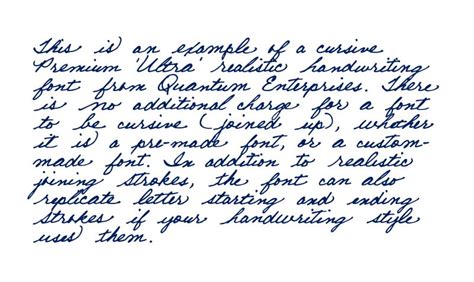 This is an example of a cursive
Premium 'Ultra' realistic handwriting
font from Quantum Enterprises. There
is no additional charge for a font
to be cursive (joined up), whether
it is a pre-made font, or a custom-
made font. In addition to realistic
joining strokes, the font can also
replicate letter starting and ending
strokes if your handwriting style
uses them.